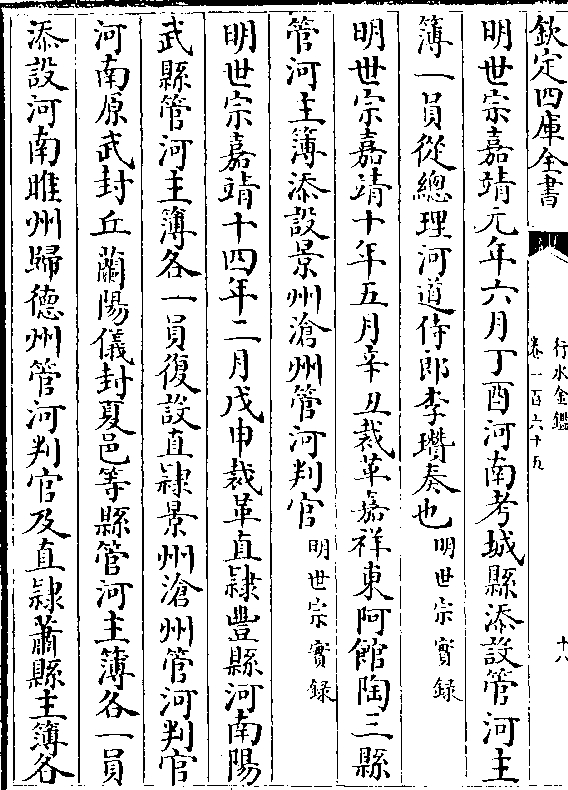 欽定四庫全書
行水金鑑
卷一百六十五
十六
明世宗嘉靖元年六月丁酉河南考城縣添設管河主
簿一員從總理河道侍郎李瓚奏也明世宗實録
明世宗嘉靖十年五月辛丑裁革嘉祥東阿館陶三縣
管河主簿添設景州滄州管河判官明世宗實録
明世宗嘉靖十四年二月戊申裁革直隸豐縣河南陽
武縣管河主簿各一員復設直隸景州滄州管河判官
河南原武封丘蘭陽儀封夏邑等縣管河主簿各一員
添設河南睢州歸德州管河判官及直隸蕭縣主簿各